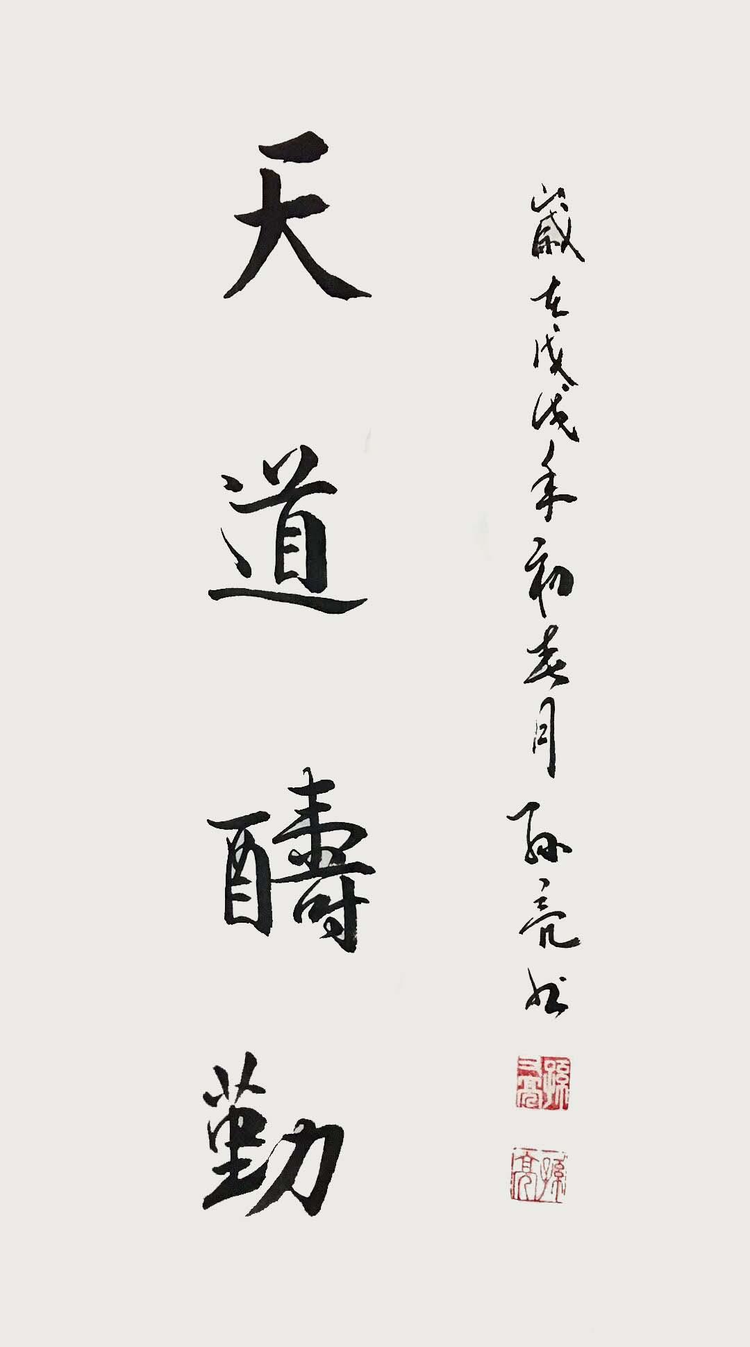 天道醻勤
歲在戊戌年初春月 孫亮书
孫亮